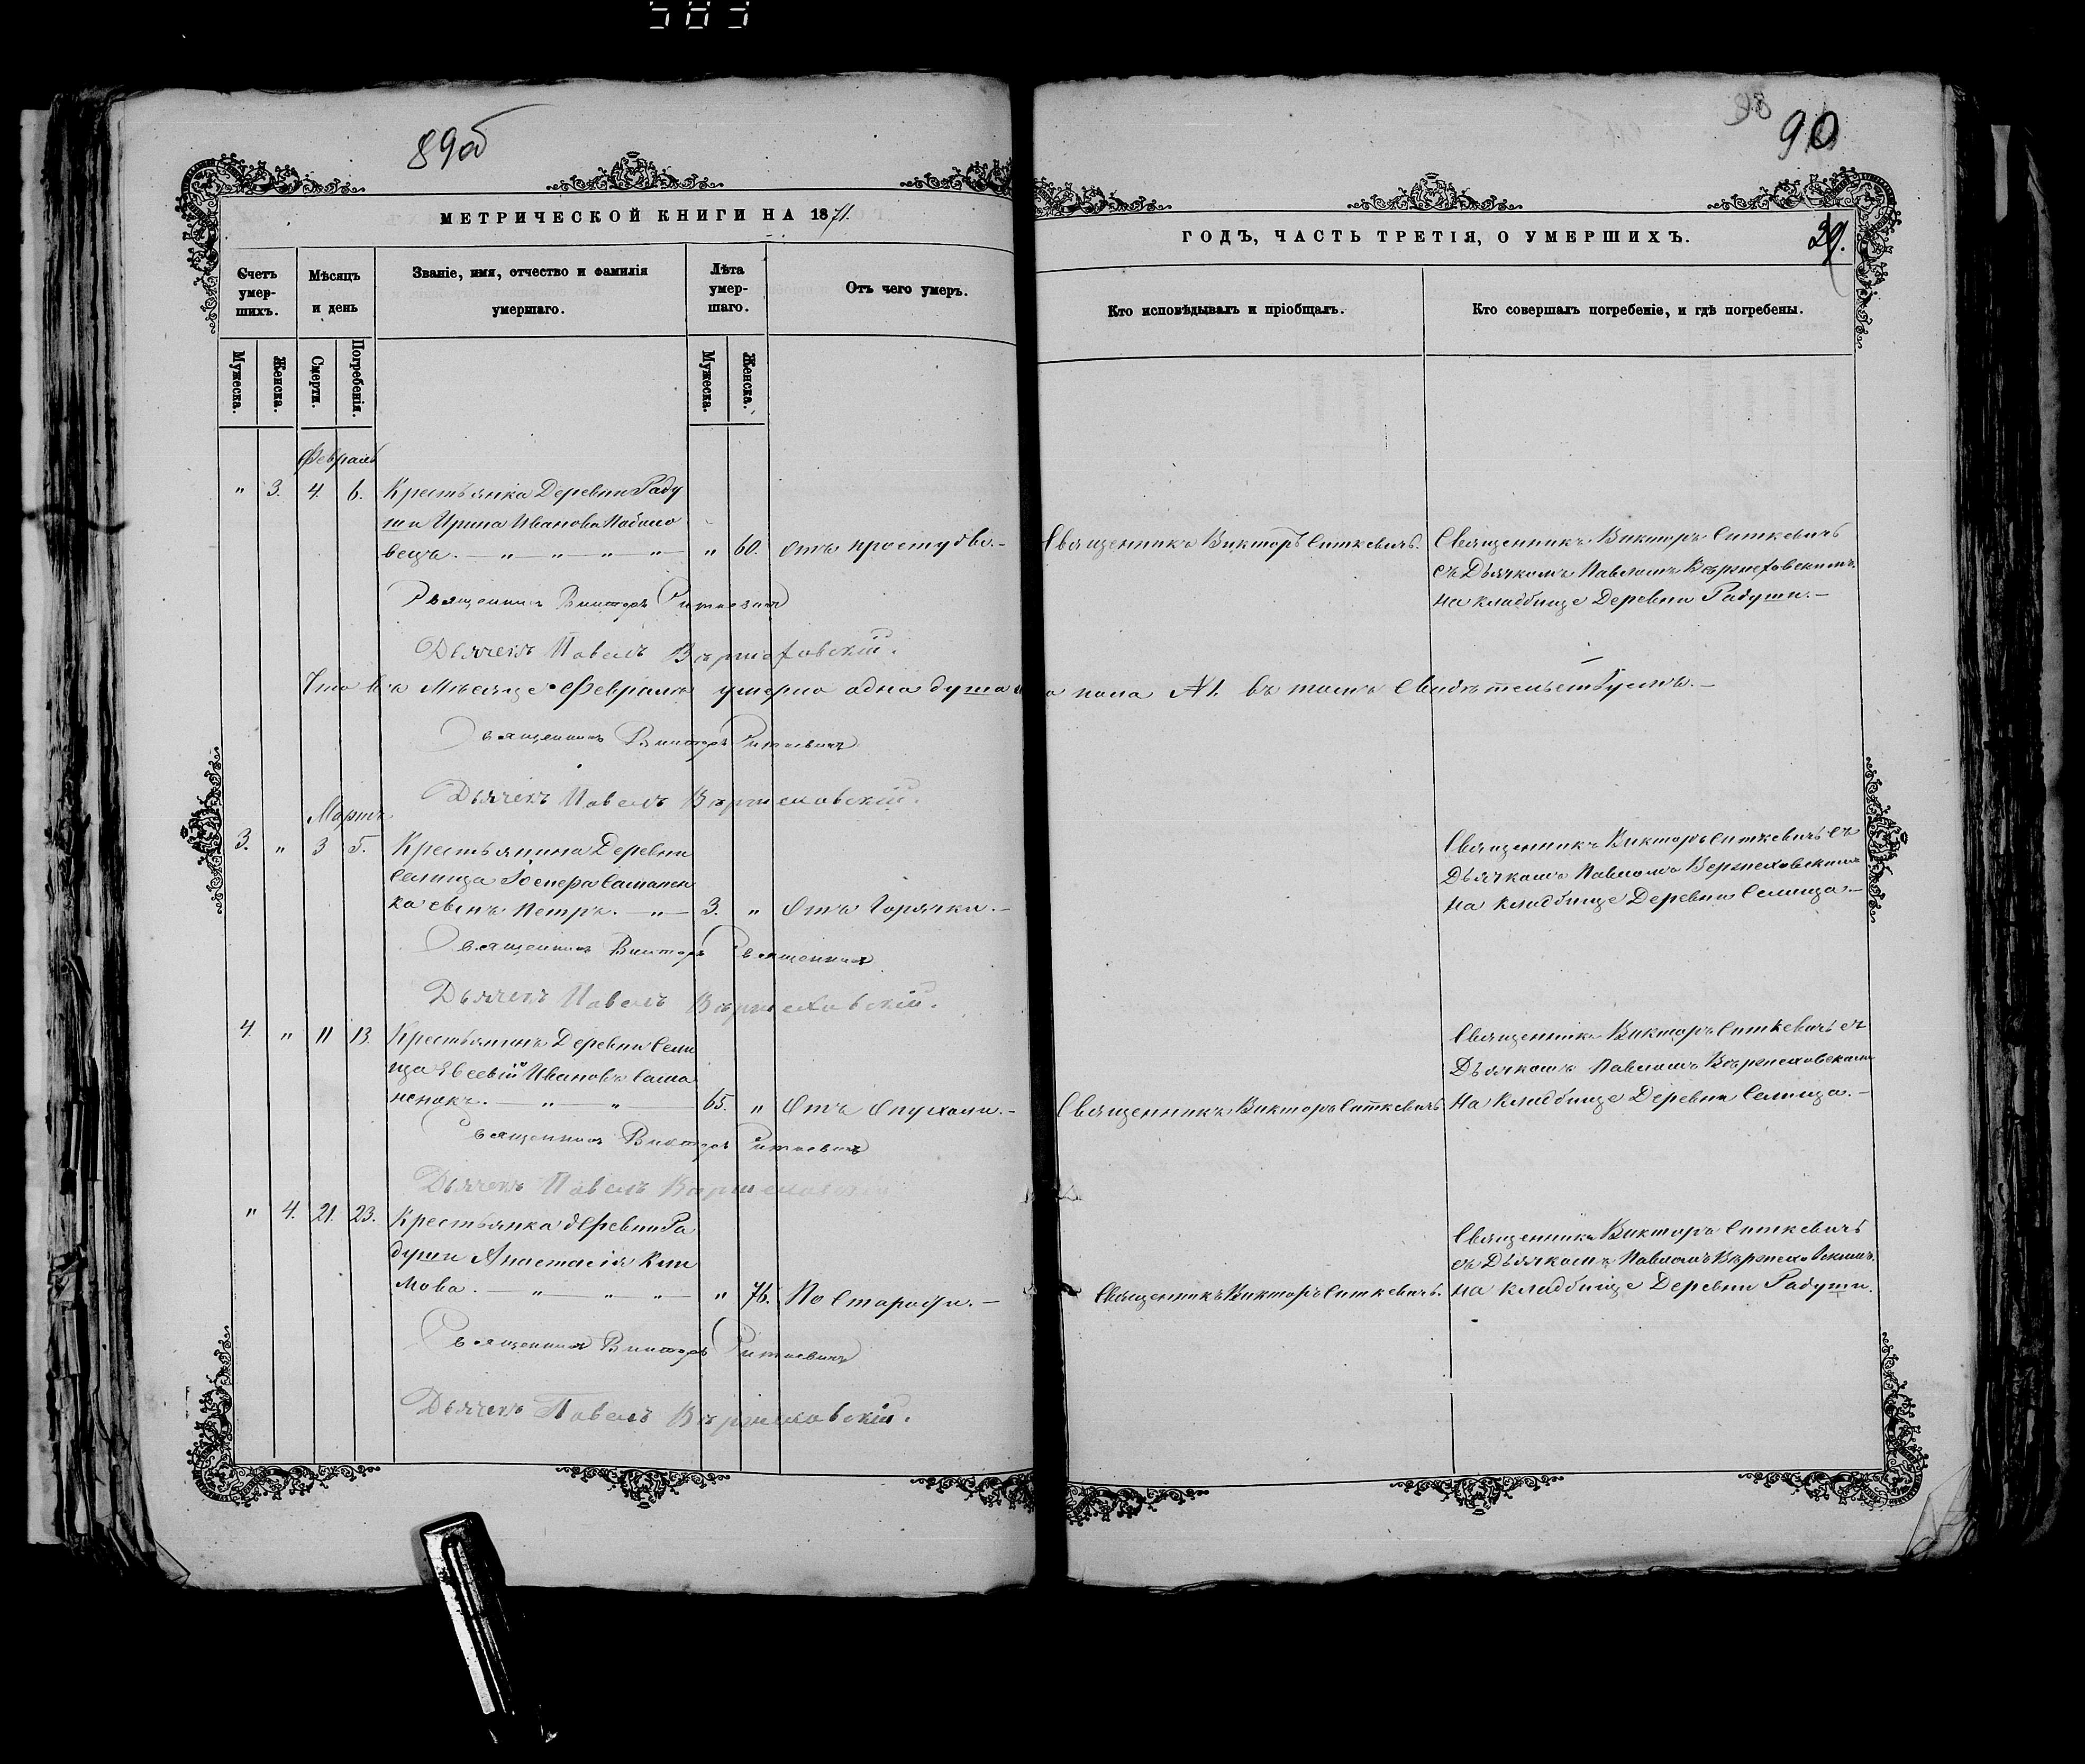 89об
98
90
МЕТРИЧЕСКОЙ КНИГИ НА 1871.
ГОДЪ, ЧАСТЬ ТРЕТІЯ, О УМЕРШИХЪ.
39.
Счетъ умер-шихъ.
Мѣсяцъ и день
Званіе, имя, отчество и фамилія умершаго.
Лѣта умер-шаго.
Отъ чего умеръ.
Кто исповѣдывалъ и пріобщалъ.
Кто совершалъ погребеніе, и гдѣ погребены.
Мужеска. Женска. Смерти. Погребенія. Мужеска. Женска.
Февраль
" 3. 4. 6. Крестьянка Деревни Раду
ши Ирина Иванова
вецъ. — " — " — " — " — " 60. Отъ простуды. — Священникъ Викторъ Ситкевичъ. Священникъ Викторъ Ситкевичъ
съ Дьячкомъ Павломъ Вержеховскимъ
на кладбище Деревни Радуши. —
Священникъ Викторъ Ситкевичъ
Дьячекъ Павелъ Вержеховскій.
Что въ Мѣсяце Февралѣ умерло одна душа пола №1. въ томъ Свидѣтельствуемъ. —
Священникъ Викторъ Ситкевичъ
Дьячекъ Павелъ Вержеховскій.
Мартъ
3. " 3 5. Крестьянина Деревни
Селища Іосифа Сашнен
ка сынъ Петръ. — " — 3. " Отъ Горячки. —
Священникъ Викторъ Ситкевичъ съ
Дьячкомъ Павломъ Вержеховскимъ
на кладбище Деревни Селища. —
Священникъ Викторъ Священникъ
Дьячекъ Павелъ Вержеховскій.
4. " 11 13. Крестьянинъ Деревни Сели
ща Евсевій Ивановъ Саша
ненокъ. — " — " — 65. " Отъ Опухоли. — Священникъ Викторъ Ситкевичъ
Священникъ Викторъ Ситкевичъ съ
Дьячкомъ Павломъ Вержеховскимъ
на кладбище Деревни Селища. —
Священникъ Викторъ Ситкевичъ
Дьячекъ Павелъ Вержеховскій
" 4. 21. 23. Крестьянка деревни Ра
души Анастасія Кли
мова. — " — " — " — " 76. По Старости. — Священникъ Викторъ Ситкевичъ.
Священникъ Викторъ Ситкевичъ
съ Дьячкомъ Павломъ Вержеховскимъ.
на кладбище Деревни Радуши.
Священникъ Викторъ Ситкевичъ
Дьячекъ Павелъ Вержеховскій.